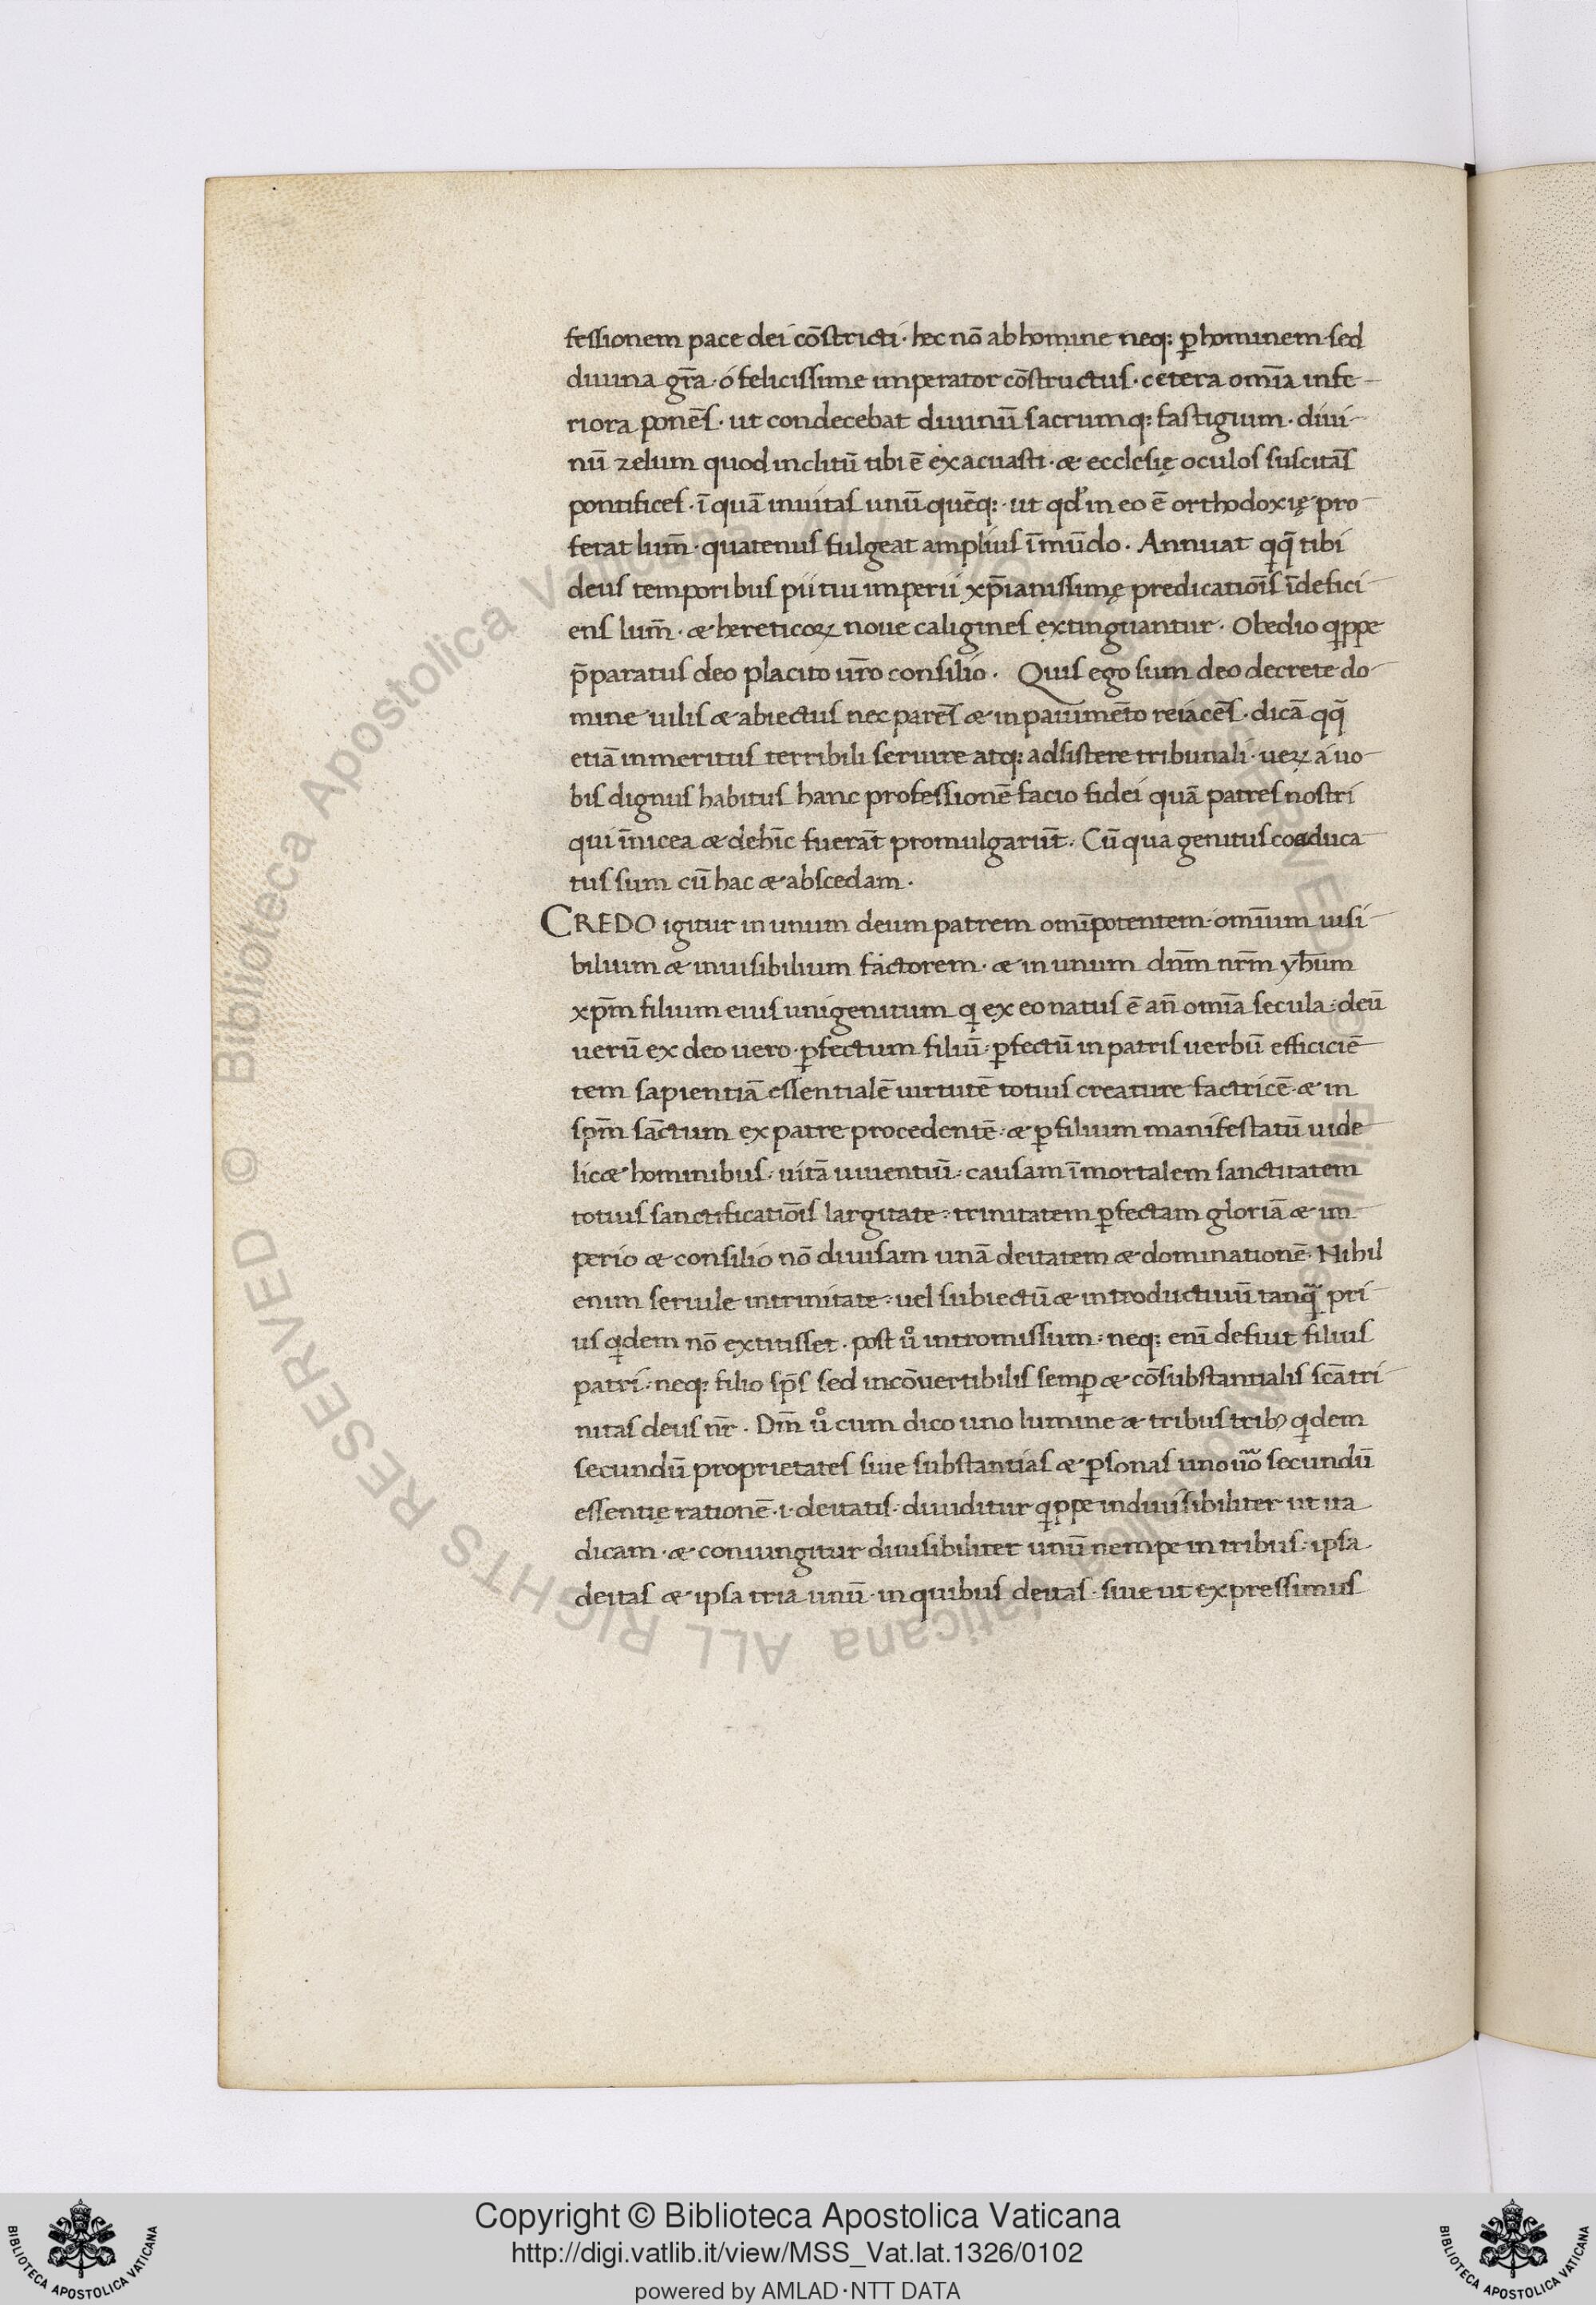 fessionem pace dei cōstricti · hec nō ab homine neq; ꝑ hominem · sed
diuina gr̄a · ó felicissime imperator cōstructus · cetera omīa infe-
riora ponēs · ut condecebat diuinū sacrumq; fastigium · diui-
nū zelum quod inclitū tibi ē exacuasti · & ecclesię oculos suscitās
pontifices · ī quā inuitas unū quēq; · ut qd̓ in eo ē orthodoxię pro-
ferat lum̄ · quatenus fulgeat amplius ī mūdo · Annuat qq̄ tibi
deus temporibus pii tui imperii xp̄ianissimę predicatiōis īdefici-
ens lum̄ · & hereticoꝝ noue caligines extinguantur · Obedio qippe
p̄paratus deo placito ur̄o consilio · Quis ego sum deo decrete do-
mine uilis & abiectus nec parēs & in pauimēto reiacēs · dicā qq̄
etiā inmeritus terribili seruire atq; adsistere tribunali · ueꝝ a uo-
bis dignus habitus hanc professionē facio fidei quā patres nostri
qui ī nicea & dehīc fuerāt promulgarūt · Cū qua genitus coaduca-
tus sum cū hac & abscedam ·
CREDO igitur in unum deum patrem omīpotentem · omīum uisi-
bilium & inuisibilium factorem · & in unum dn̄m nr̄m yhūm
xp̄m filium eius unigenitum q ex eo natus ē an̄ omīa secula · deū
uerū ex deo uero · ꝑfectum filiū · ꝑfectū in patris uerbū efficiciē-
tem sapientiā essentialē uirtutē totius creature factricē · & in
sp̄m sāctum ex patre procedentē · & ꝑ filium manifestatū uide
lic& hominibus · uitā uiuentiū · causam īmortalem sanctitatem
totius sanctificatiōis largitate · trinitatem ꝑfectam gloriā & im-
perio & consilio nō diuisam unā deitatem & dominationē · Nihil
enim seruile in trinitate · uel subiectū & introductiuū tanqͣ pri-
us qidem nō extitisset · post uͦ intromissum · neq; enī defuit filius
patri · neq; filio sp̄s sed incōuertibilis semꝑ & cōsubstantialis sc̄a tri-
nitas deus nr̄ · Dm̄ uͦ cum dico uno lumine & tribus trib᷒ qidem
secundū proprietates siue substantias & ꝑsonas uno uͦo secundū
essentię rationē · i · deitatis · diuiditur qippe indiuisibiliter ut ita
dicam · & coniungitur diuisibiliter unū nempe in tribus · ipsa
deitas & ipsa tria unū · in quibus deitas · siue ut expressimus
© Biblioteca Apostolica Vaticana ALL RIGHTS RESERVED
Copyright © Biblioteca Apostolica Vaticana
http://digi.vatlib.it/view/MSS_Vat.lat.1326/0102
powered by AMLAD·NTT DATA
BIBLIOTECA APOSTOLICA VATICANA
BIBLIOTECA APOSTOLICA VATICANA